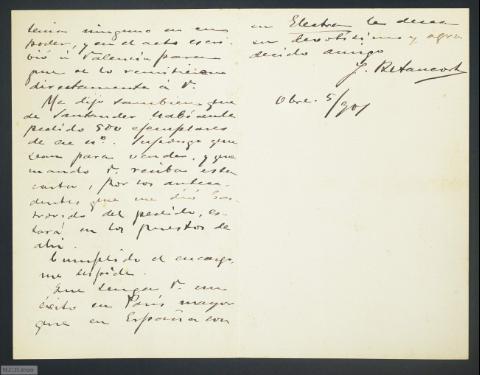 tenia ninguno en su
poder, y en el acto escri-
bió á Valencia para
que se lo remitieran
directamente á V.
Me dijo tambien que
de Santander habianle
pedido 500 ejemplares
de ae nº. Supongo que
sean para vender, y que
cuando V. reciba esta
carta, por los antece-
dentes que me dió Cas-
trovido del pedido, es-
tará en los puestos de
ahi.
Cumplido el encargo,
me despido.
Que tenga V. un
éxito en París mayor
que en España con
su Electra le desea
su devotisimo y agra-
decido amigo
J. Betancort
Obre. 5/901